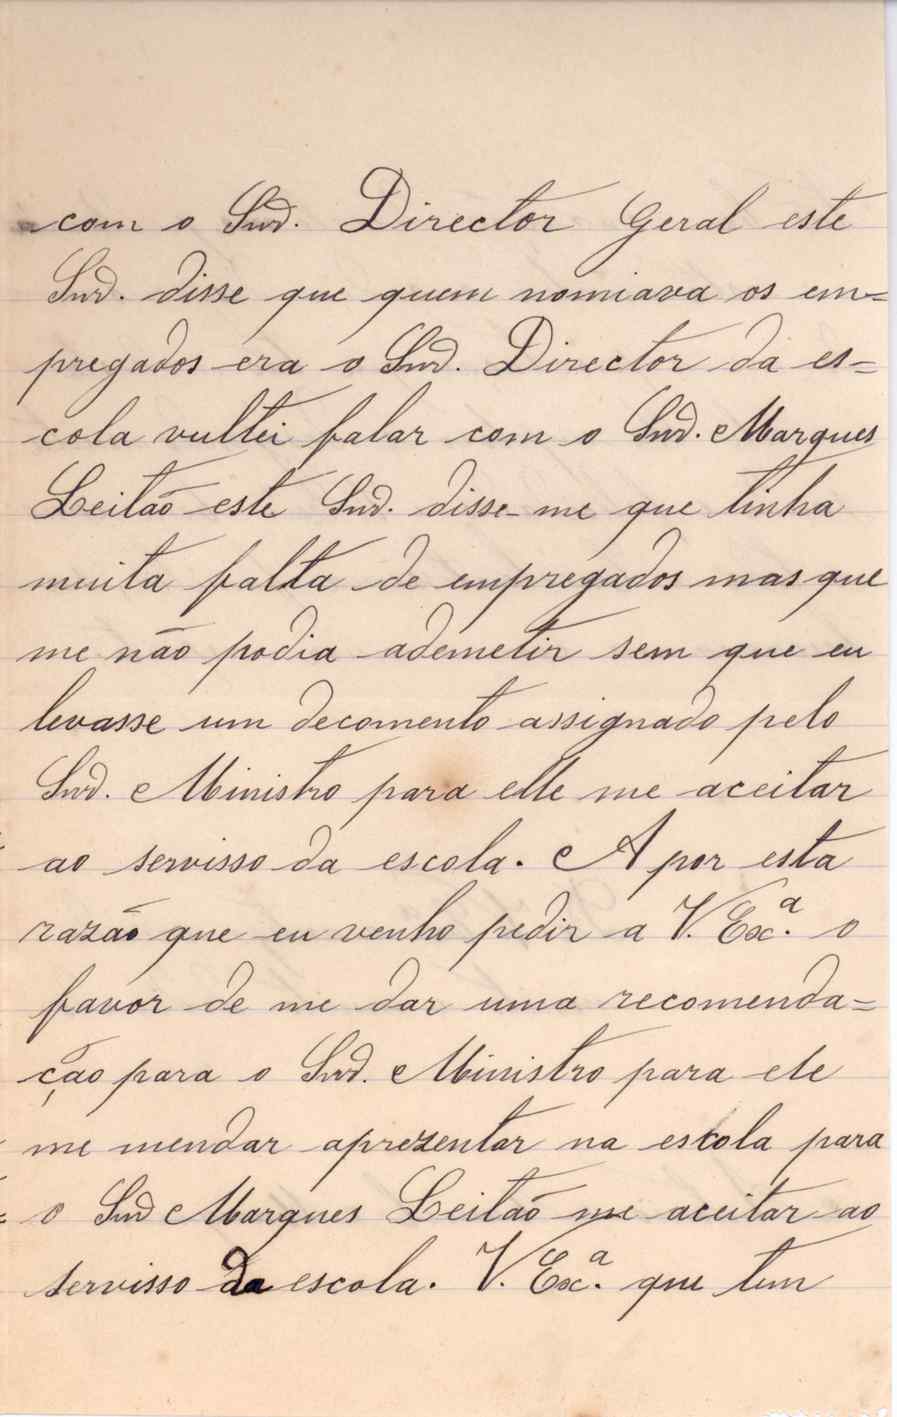 com o Snr. Director Geral este
Snr. disse que quem nomiava os em=
pregados era o Snr. Director da es=
cola vultei falar com o Snr. Marques
Leitão este Snr. disse-me que tinha
muita falta de empregados mas que
me não podia ademetir sem que eu
levasse um decomento assignado pelo
Snr. Ministro para elle me aceitar
ao servisso da escola. A por esta
razão que eu venho pedir a V. Exc.ª o
favor de me dar uma recomenda=
ção para o Snr. Ministro para ele
me mendar aprezentar na escola para
o Snr Marques Leitão me aceitar ao
servisso da escola. V. Exc.ª que tem